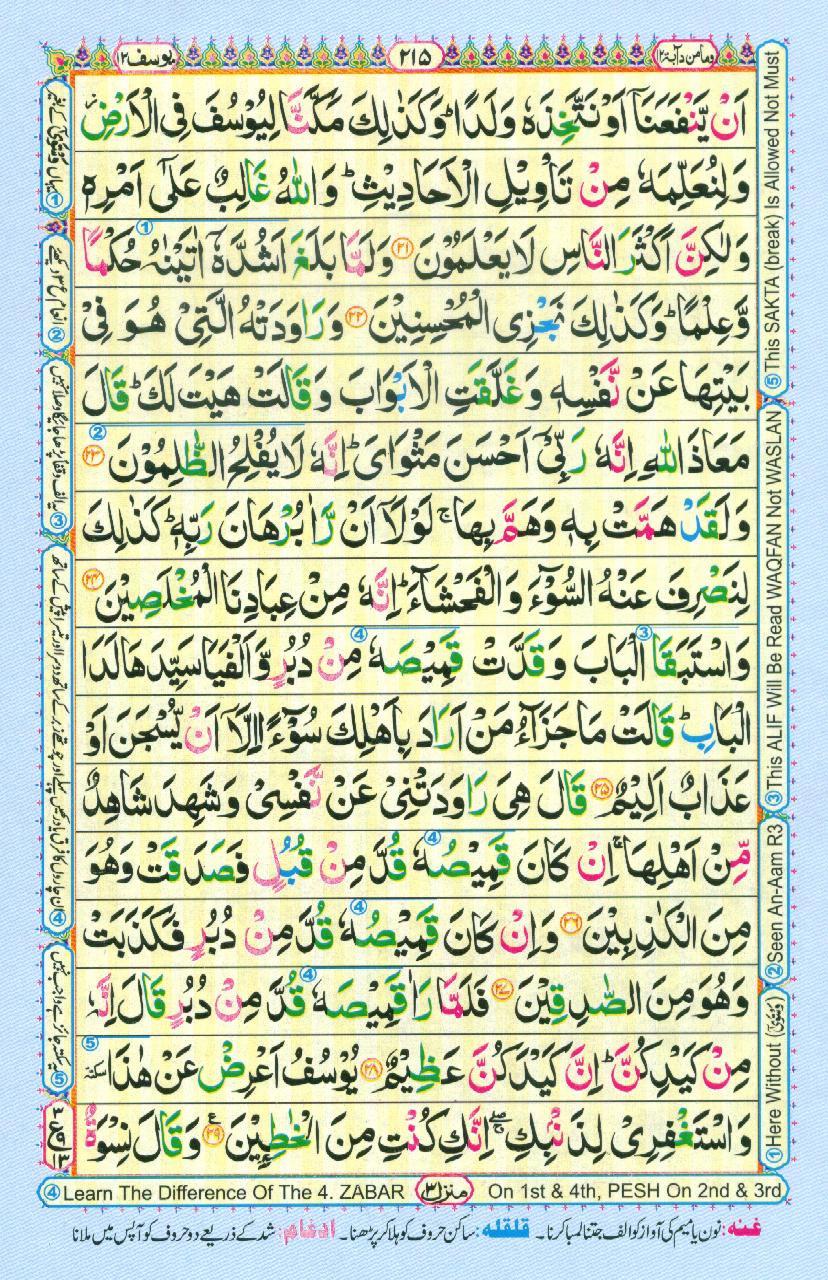 وما من دآبة ۱۲
۲۱۵
یوسف ۱۲
اَنْ يَّنْفَعَنَاۤ اَوْ نَتَّخِذَهٗ وَلَدًا ؕ وَكَذٰلِكَ مَكَّنَّا لِيُوْسُفَ فِى الْاَرْضِ ؗ
وَلِنُعَلِّمَهٗ مِنْ تَاْوِيْلِ الْاَحَادِيْثِ ؕ وَاللّٰهُ غَالِبٌ عَلٰٓى اَمْرِهٖ
وَلٰكِنَّ اَكْثَرَ النَّاسِ لَا يَعْلَمُوْنَ ﴿۲۱﴾ وَلَمَّا بَلَغَ اَشُدَّهٗۤ اٰتَيْنٰهُ حُكْمًا
وَّعِلْمًا ؕ وَكَذٰلِكَ نَجْزِى الْمُحْسِنِيْنَ ﴿۲۲﴾ وَرَاوَدَتْهُ الَّتِىْ هُوَ فِىْ
بَيْتِهَا عَنْ نَّفْسِهٖ وَغَلَّقَتِ الْاَبْوَابَ وَقَالَتْ هَيْتَ لَكَ ؕ قَالَ
مَعَاذَ اللّٰهِ اِنَّهٗ رَبِّىْۤ اَحْسَنَ مَثْوَاىَ ؕ اِنَّهٗ لَا يُفْلِحُ الظّٰلِمُوْنَ ﴿۲۳﴾
وَلَقَدْ هَمَّتْ بِهٖ وَهَمَّ بِهَا ۚ لَوْلَاۤ اَنْ رَّاٰ بُرْهَانَ رَبِّهٖ ؕ كَذٰلِكَ
لِنَصْرِفَ عَنْهُ السُّوْٓءَ وَالْفَحْشَآءَ ؕ اِنَّهٗ مِنْ عِبَادِنَا الْمُخْلَصِيْنَ ﴿۲۴﴾
وَاسْتَبَقَا الْبَابَ وَقَدَّتْ قَمِيْصَهٗ مِنْ دُبُرٍ وَّاَلْفَيَا سَيِّدَهَا لَدَا
الْبَابِ ؕ قَالَتْ مَا جَزَآءُ مَنْ اَرَادَ بِاَهْلِكَ سُوْٓءًا اِلَّاۤ اَنْ يُّسْجَنَ اَوْ
عَذَابٌ اَلِيْمٌ ﴿۲۵﴾ قَالَ هِىَ رَاوَدَتْنِىْ عَنْ نَّفْسِىْ وَشَهِدَ شَاهِدٌ
مِّنْ اَهْلِهَا ۚ اِنْ كَانَ قَمِيْصُهٗ قُدَّ مِنْ قُبُلٍ فَصَدَقَتْ وَهُوَ
مِنَ الْكٰذِبِيْنَ ﴿۲۶﴾ وَاِنْ كَانَ قَمِيْصُهٗ قُدَّ مِنْ دُبُرٍ فَكَذَبَتْ
وَهُوَ مِنَ الصّٰدِقِيْنَ ﴿۲۷﴾ فَلَمَّا رَاٰ قَمِيْصَهٗ قُدَّ مِنْ دُبُرٍ قَالَ اِنَّهٗ
مِنْ كَيْدِكُنَّ ؕ اِنَّ كَيْدَكُنَّ عَظِيْمٌ ﴿۲۸﴾ يُوْسُفُ اَعْرِضْ عَنْ هٰذَا سكتة
وَاسْتَغْفِرِىْ لِذَنْۢبِكِ ۖۚ اِنَّكِ كُنْتِ مِنَ الْخٰطِـِٕيْنَ ﴿۲۹﴾ ع وَقَالَ نِسْوَةٌ
① Here Without (وَتَقْوٰىۚ)
② Seen An-Aam R3
③ This ALIF Will Be Read WAQFAN Not WASLAN
⑤ This SAKTA (break) Is Allowed Not Must
④ Learn The Difference Of The 4. ZABAR
منزل ۳
On 1st & 4th, PESH On 2nd & 3rd
غنه: نون یا میم کی آواز کو الف جتنا لمبا کرنا۔ قلقله: ساکن حروف کو ہلا کر پڑھنا۔ ادغام: شد کے ذریعے دو حروف کو آپس میں ملانا